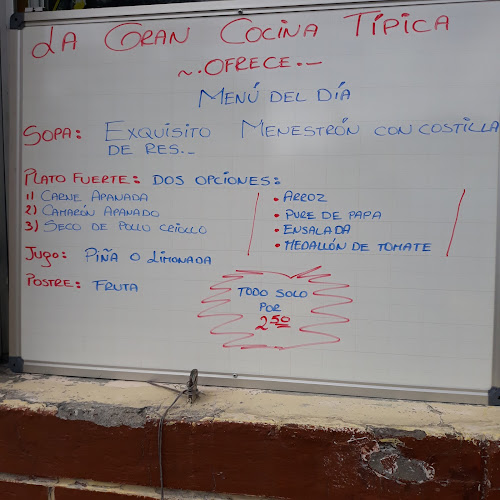 LA GRAN COCINA TÍPICA
~.OFRECE.~
MENÚ DEL DÍA
SOPA: EXQUISITO MENESTRÓN CON COSTILLA
DE RES._
PLATO FUERTE: DOS OPCIONES:
1) CARNE APANADA
2) CAMARÓN APANADO
3) SECO DE POLLO CRIOLLO
• ARROZ
• PURE DE PAPA
• ENSALADA
• MEDALLÓN DE TOMATE
JUGO: PIÑA O LIMONADA
POSTRE: FRUTA
TODO SOLO
POR
2.50